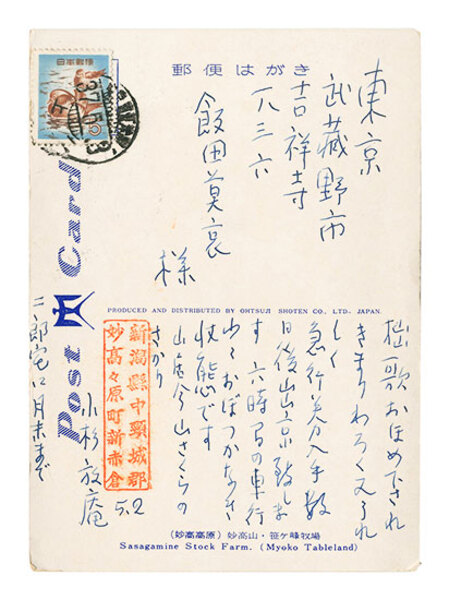 日本郵便
郵便はがき
東京
武蔵野市
吉祥寺
一八三六
飯田莫哀
様
Post Card
PRODUCED AND DISTRIBUTED BY OHTSUJI SHOTEN CO., LTD., JAPAN.
拙歌おほめ下され
きまりわろく又うれ
しく
急行券入手数
日後出京致しま
す 六時間の車行
少々おぼつかなき
状態です
山居今山さくらの
さかり
新潟縣中頸城郡
妙高々原町新赤倉
5.2
小杉放庵
二郎宅に月末まで
(妙高高原) 妙高山・笹ケ峰牧場
Sasagamine Stock Farm. (Myoko Tableland)